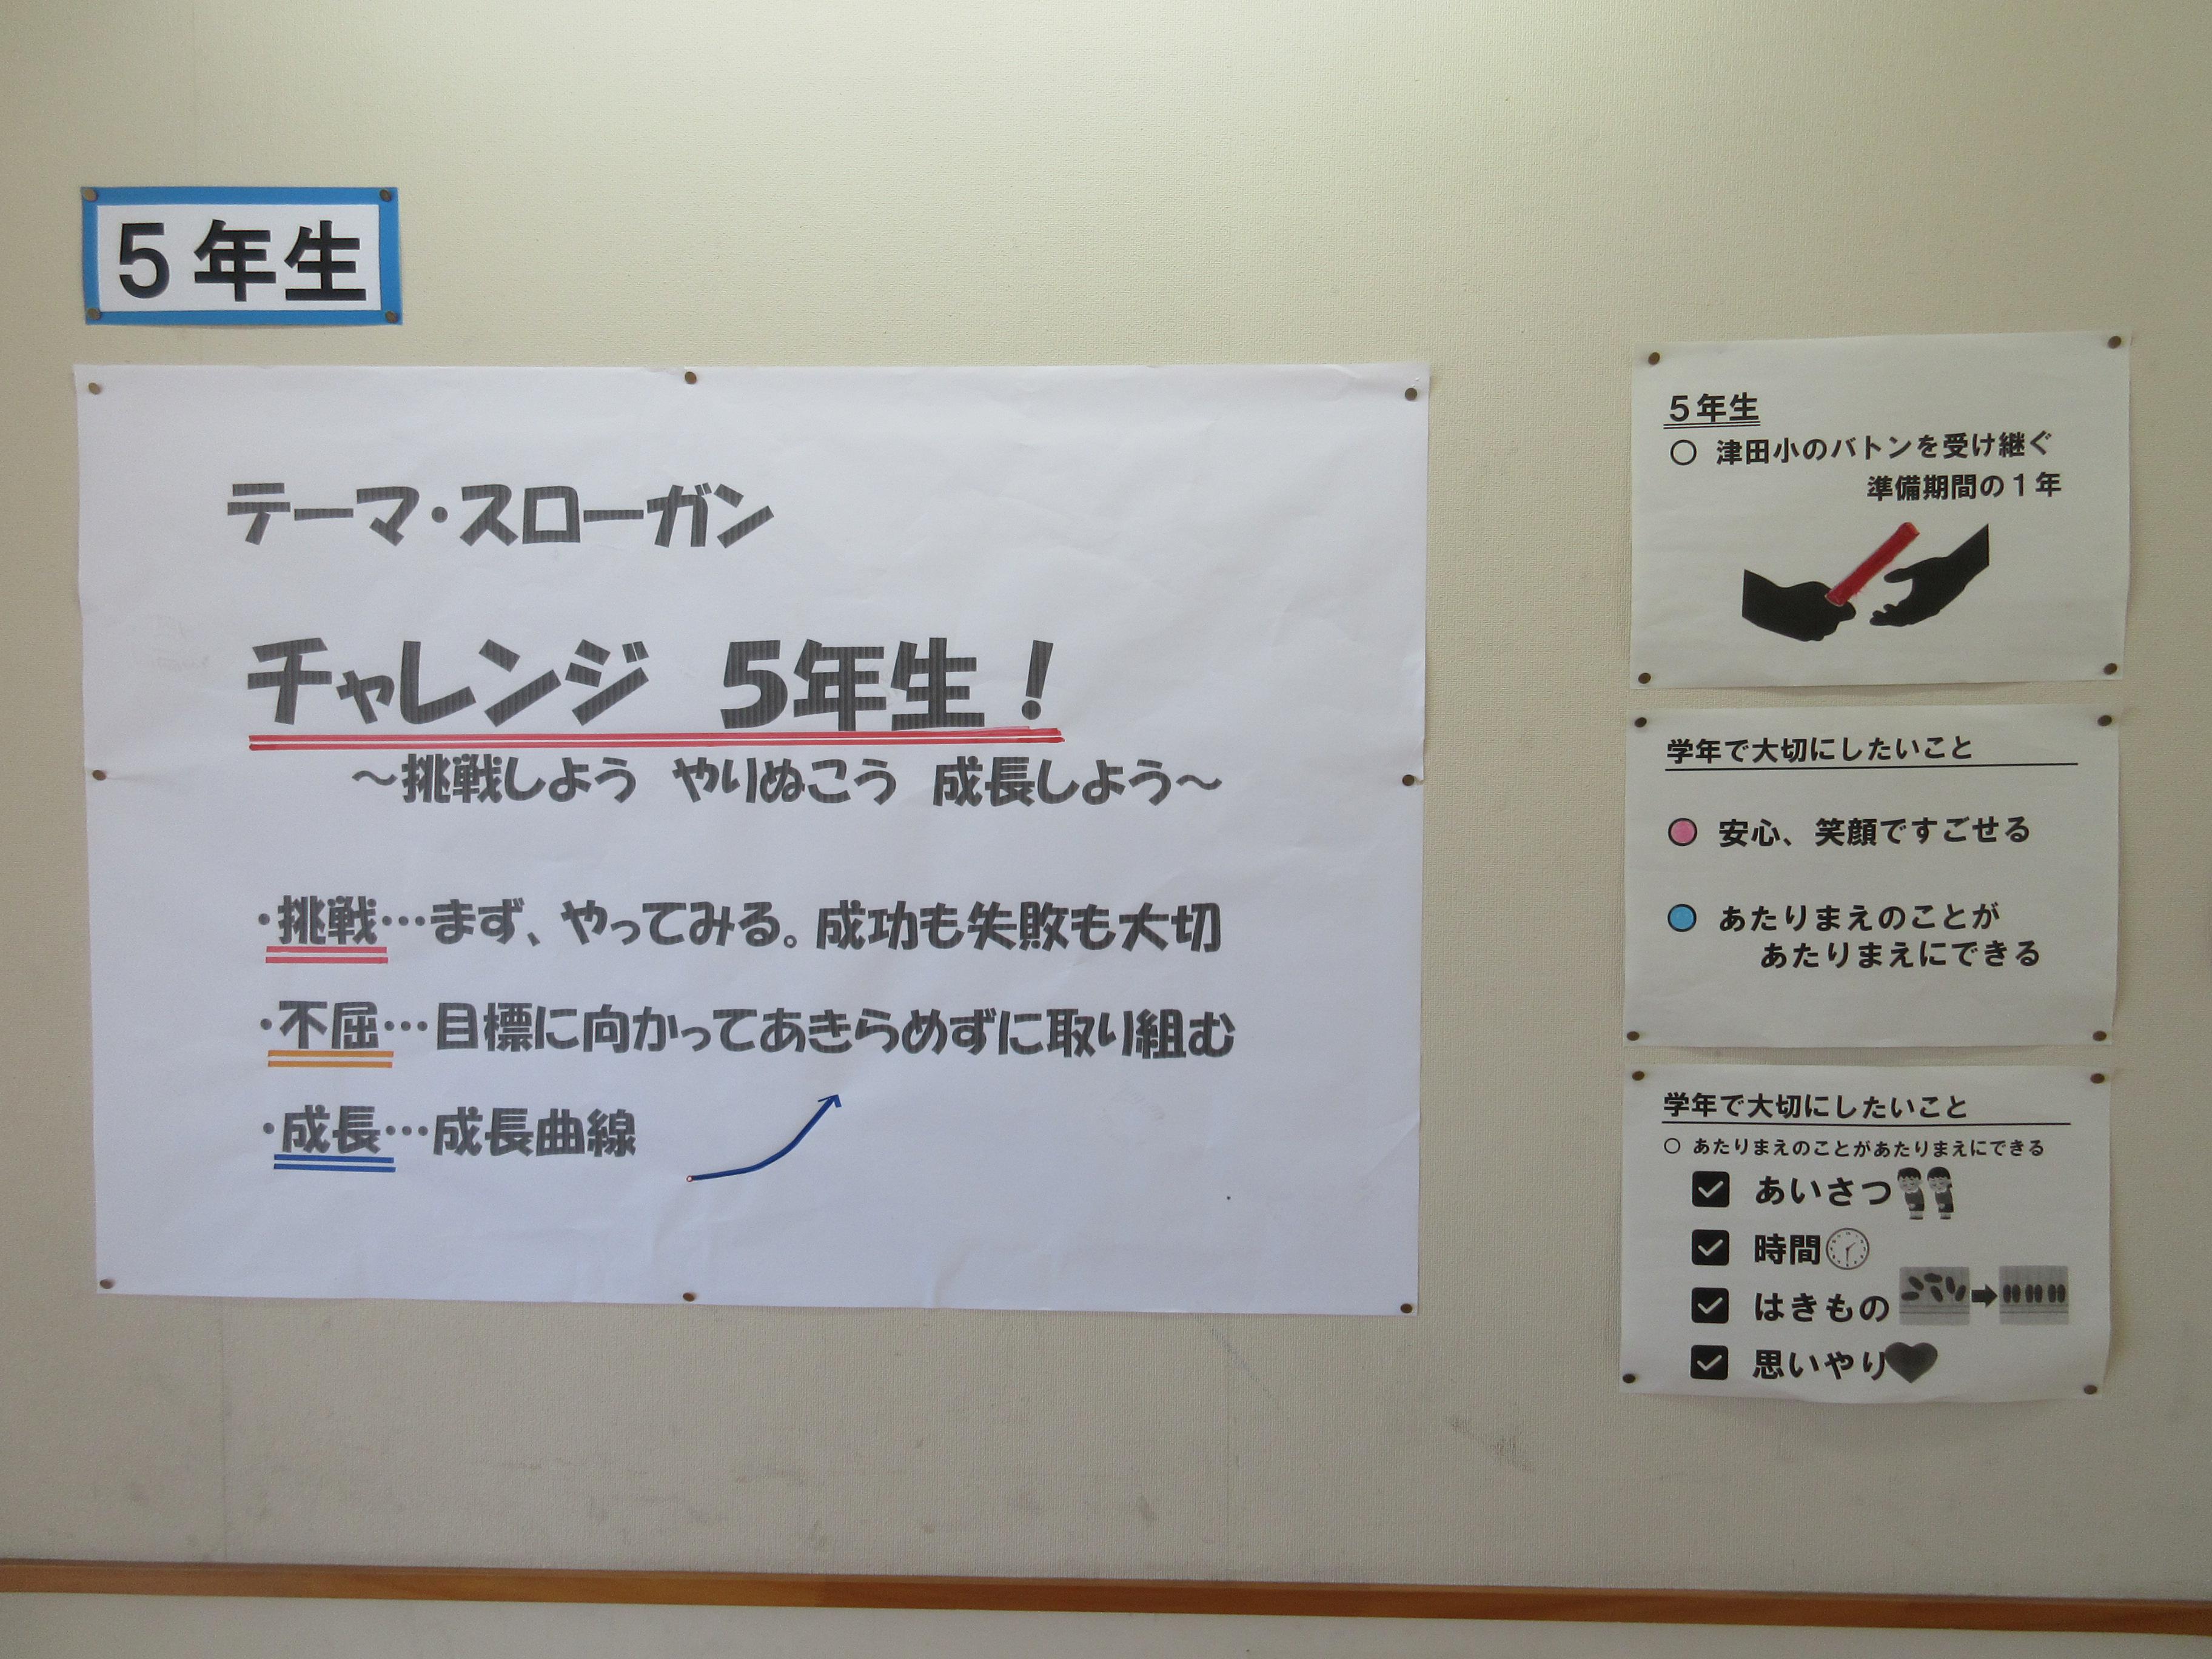 5年生
テーマ・スローガン
チャレンジ 5年生!
~挑戦しよう やりぬこう 成長しよう~
・挑戦…まず、やってみる。成功も失敗も大切
・不屈…目標に向かってあきらめずに取り組む
・成長…成長曲線
5年生
○ 津田小のバトンを受け継ぐ
準備期間の1年
学年で大切にしたいこと
安心、笑顔ですごせる
あたりまえのことが
あたりまえにできる
学年で大切にしたいこと
○ あたりまえのことがあたりまえにできる
あいさつ
時間
はきもの
思いやり